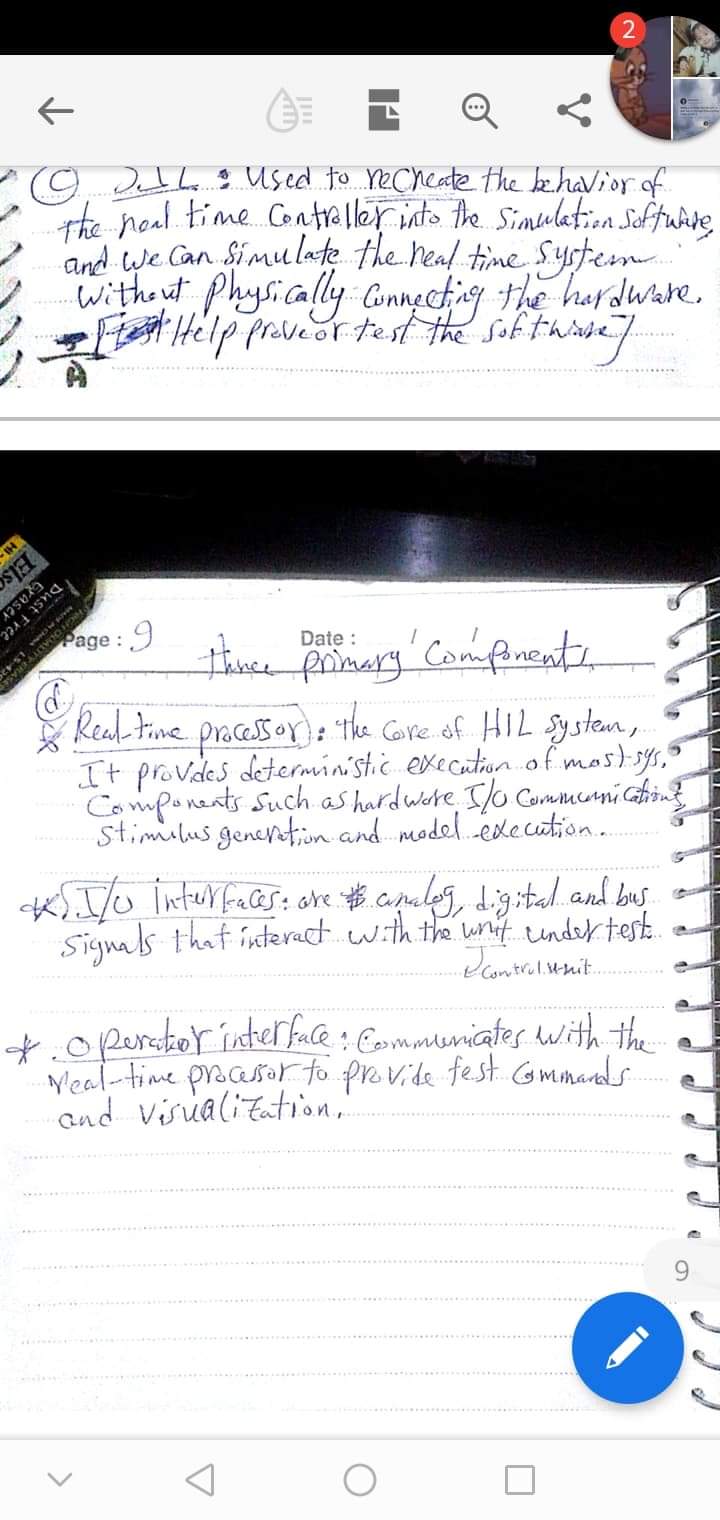 2
(c) S.I.L. : Used to recreate the behavior of
the real time Controller into the Simulation Software,
and we can simulate the real time System
without Physically Connecting the hardware.
[Help prove or test the software]
A
Page : 9 Date :
three primary Components
(d)
* Real-time processor): the Core of HIL System,
It provides deterministic execution of most sys.
Components such as hardware I/O Communications,
Stimulus generation and model execution.
* I/O Interfaces: are analog, digital and bus
Signals that interact with the unit under test.
Control unit
* Operator interface : Communicates with the
real-time processor to provide test Commands
and visualization.
9